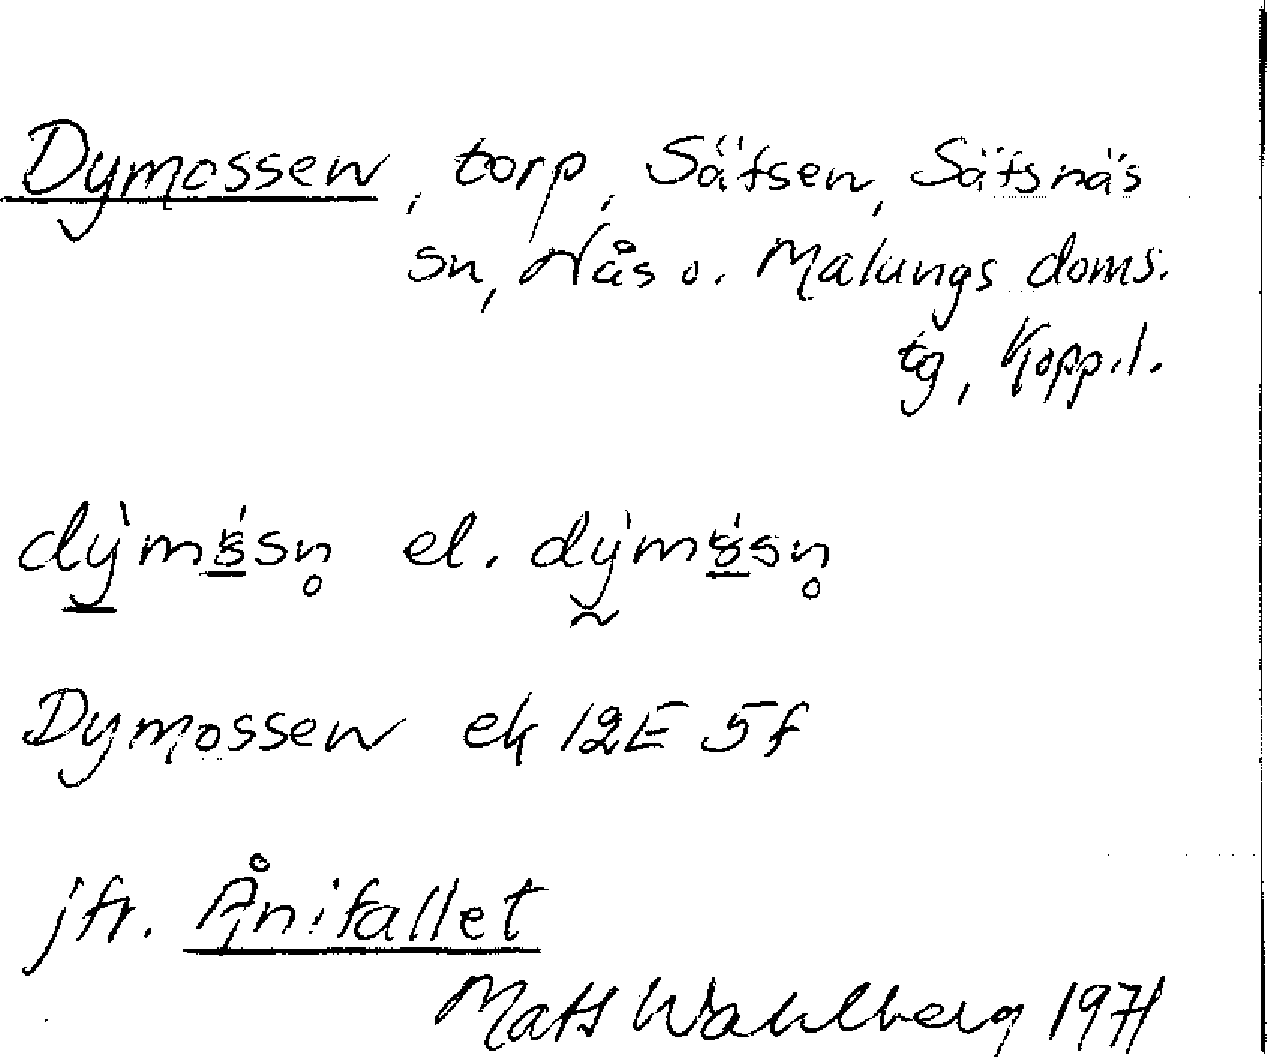 Dymossen, torp, Sätsen, Sätsnäs
sn, Nås o. Malungs doms.
tg, Kopp.l.
el.
Dymossen ek 12E 5f
jfr. Ånifallet
Mats Wahlberg 1971